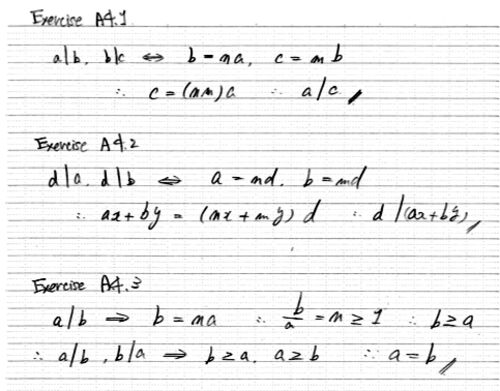 Exercise A4.1
a|b, b|c ⇔ b = na, c = mb
∴ c = (nm)a ∴ a|c
Exercise A4.2
d|a, d|b ⇔ a = nd, b = md
∴ ax+by = (nx+my)d ∴ d|(ax+by)
Exercise A4.3
a|b ⇒ b = na ∴ b/a = n ≥ 1 ∴ b ≥ a
∴ a|b, b|a ⇒ b ≥ a, a ≥ b ∴ a = b